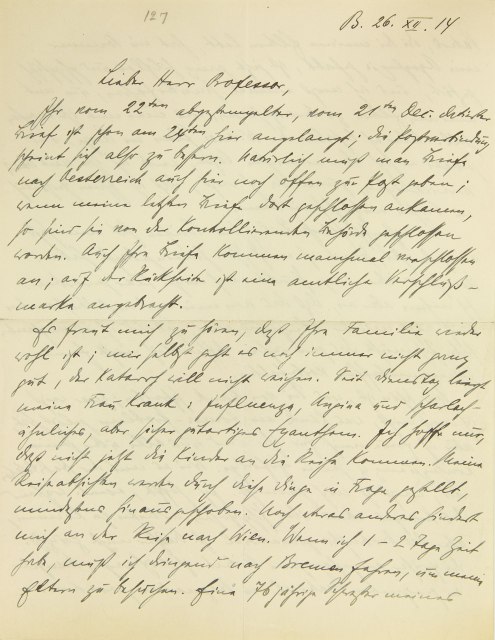 127
B. 26. XII. 14
Lieber Herr Professor,
Ihr vom 22ten abgestempelter, vom 21ten Dec. datierter
Brief ist schon am 24ten hier angelangt; die Postverbindung
scheint sich also zu bessern. Natürlich muß man Briefe
nach Oesterreich auch hier noch offen zur Post geben;
wenn meine letzten Briefe dort geschlossen ankamen,
so sind sie von der kontrollierenden Behörde geschlossen
worden. Auch Ihre Briefe kommen manchmal verschlossen
an; auf der Rückseite ist eine amtliche Verschluß-
marke angebracht.
Es freut mich zu hören, daß Ihre Familie wieder
wohl ist; mir selbst geht es noch immer nicht ganz
gut, der Katarrh will nicht weichen. Seit Dienstag liegt
meine Frau krank: Influenza, Angina und scharlach-
ähnliches, aber sicher gutartiges Exanthem. Ich hoffe nur,
daß nicht jetzt die Kinder an die Reihe kommen. Meine
Reiseabsichten werden durch diese Dinge in Frage gestellt,
mindestens hinausgeschoben. Noch etwas anderes hindert
mich an der Reise nach Wien. Wenn ich 1-2 Tage Zeit
habe, muß ich dringend nach Bremen fahren, um meine
Eltern zu besuchen. Eine 76 jährige Schwester meines